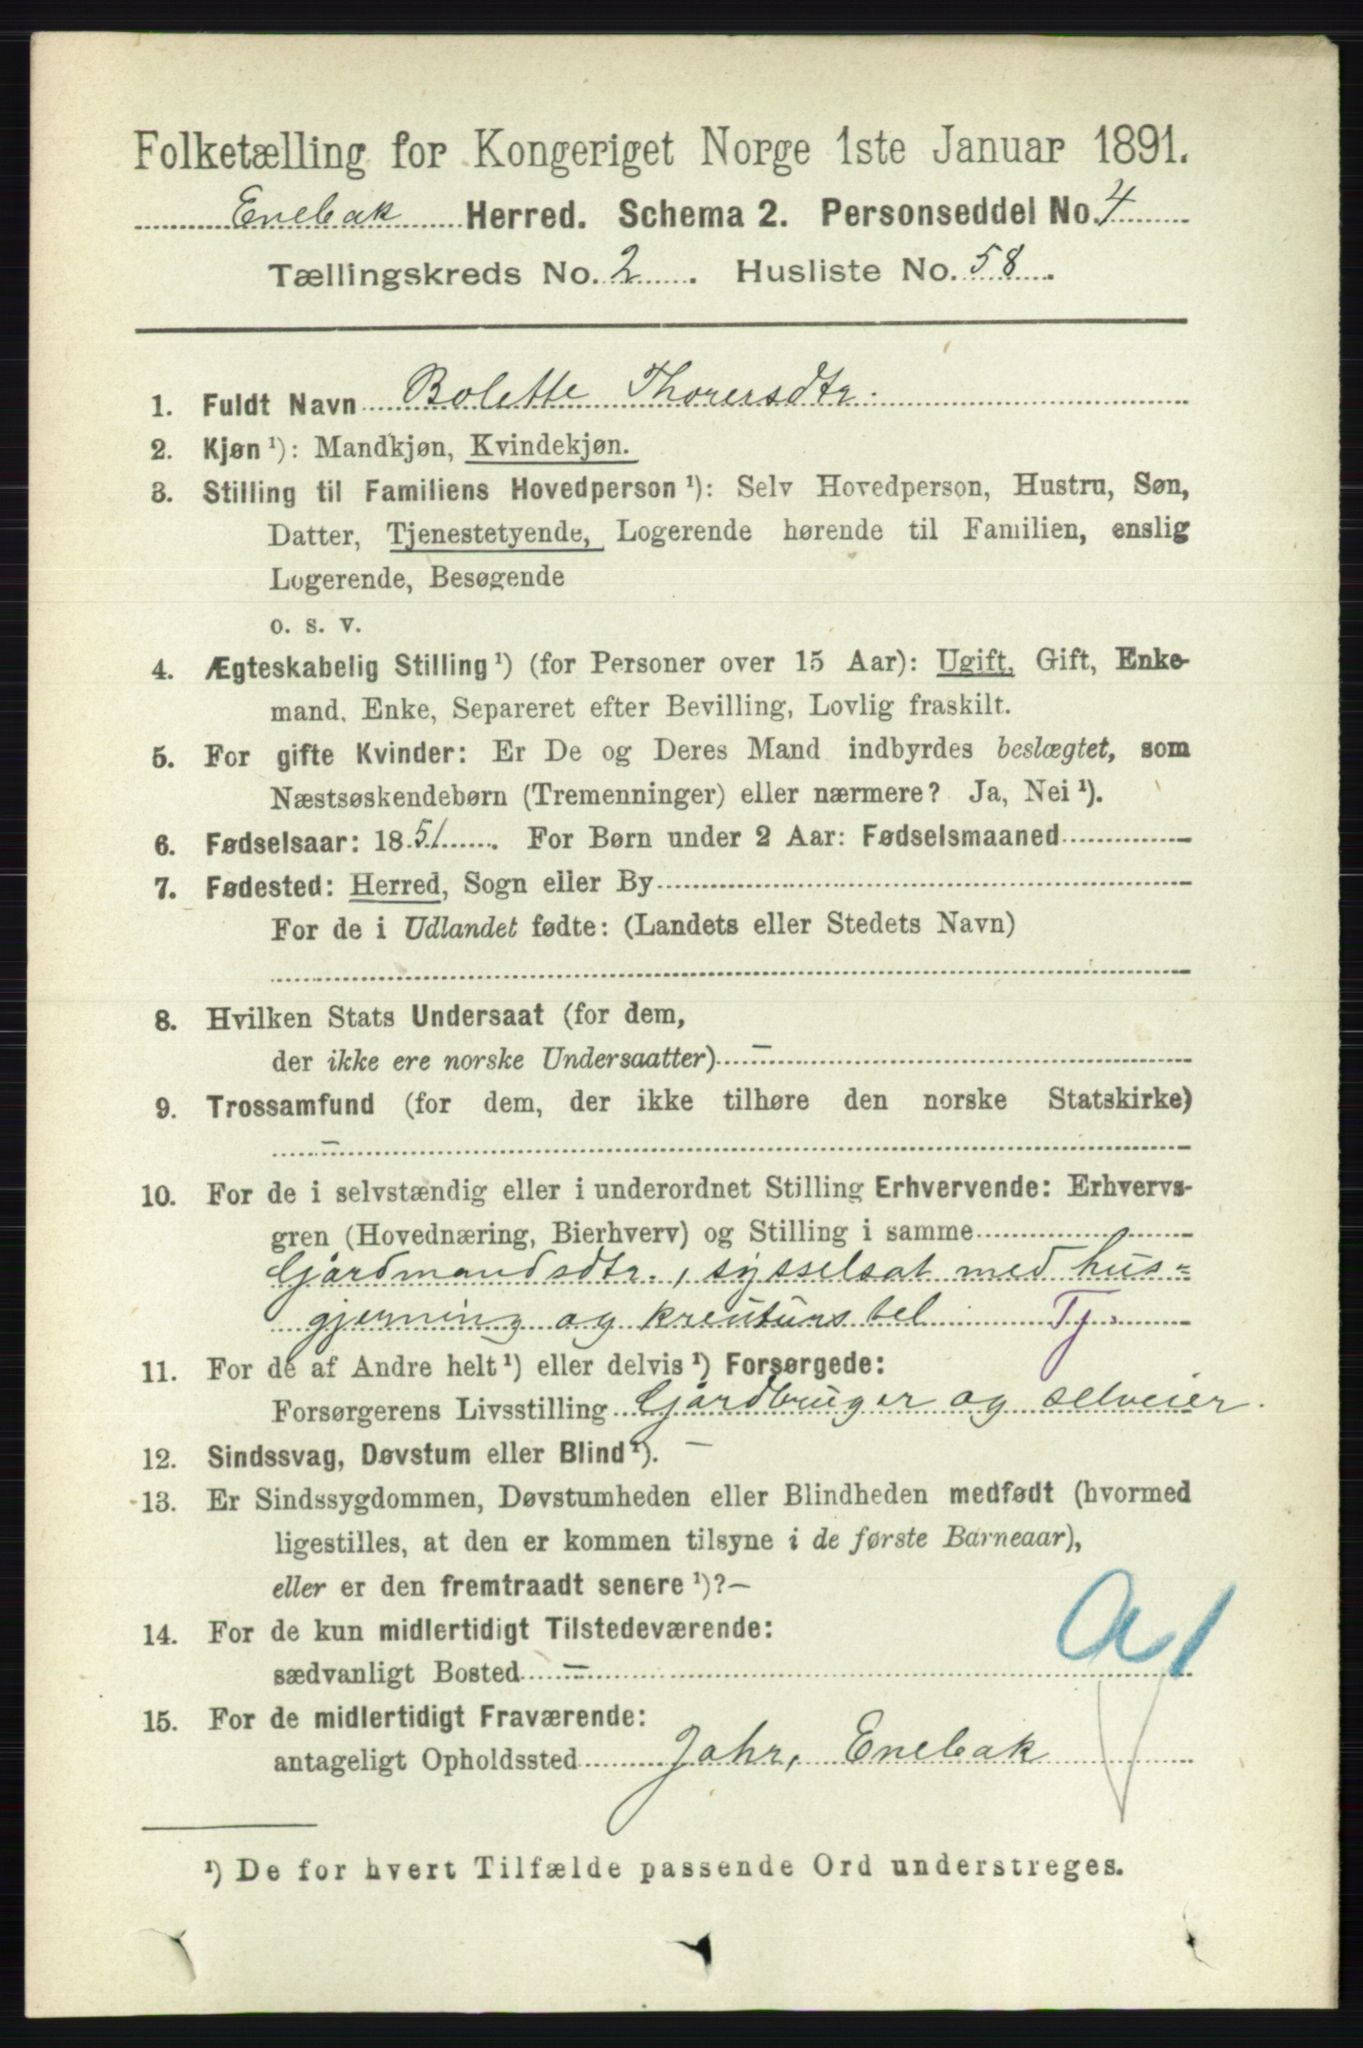 Folketælling for Kongeriget Norge 1ste Januar 1891.
Enebak Herred. Schema 2. Personseddel No. 4
Tællingskreds No. 2. Husliste No. 58.
1. Fuldt Navn Bolette Thorersdtr.
2. Kjøn ¹): Mandkjøn, Kvindekjøn.
3. Stilling til Familiens Hovedperson ¹): Selv Hovedperson, Hustru, Søn,
Datter, Tjenestetyende, Logerende hørende til Familien, enslig
Logerende, Besøgende
o. s. v.
4. Ægteskabelig Stilling ¹) (for Personer over 15 Aar): Ugift, Gift, Enke-
mand, Enke, Separeret efter Bevilling, Lovlig fraskilt.
5. For gifte Kvinder: Er De og Deres Mand indbyrdes beslægtet, som
Næstsøskendebørn (Tremenninger) eller nærmere? Ja, Nei ¹).
6. Fødselsaar: 1851. For Børn under 2 Aar: Fødselsmaaned
7. Fødested: Herred, Sogn eller By
For de i Udlandet fødte: (Landets eller Stedets Navn)
8. Hvilken Stats Undersaat (for dem,
der ikke ere norske Undersaatter) –
9. Trossamfund (for dem, der ikke tilhøre den norske Statskirke)
–
10. For de i selvstændig eller i underordnet Stilling Erhvervende: Erhvervs-
gren (Hovednæring, Bierhverv) og Stilling i samme
Gårdmandsdtr., sysselsat med hus=
gjerning og kreaturstel Tj.
11. For de af Andre helt ¹) eller delvis ¹) Forsørgede:
Forsørgerens Livsstilling Gårdbruger og selveier.
12. Sindssvag, Døvstum eller Blind ¹). –
13. Er Sindssygdommen, Døvstumheden eller Blindheden medfødt (hvormed
ligestilles, at den er kommen tilsyne i de første Barneaar),
eller er den fremtraadt senere ¹)? –
14. For de kun midlertidigt Tilstedeværende:
sædvanligt Bosted –
a 1
15. For de midlertidigt Fraværende:
antageligt Opholdssted Jahr, Enebak
¹) De for hvert Tilfælde passende Ord understreges.